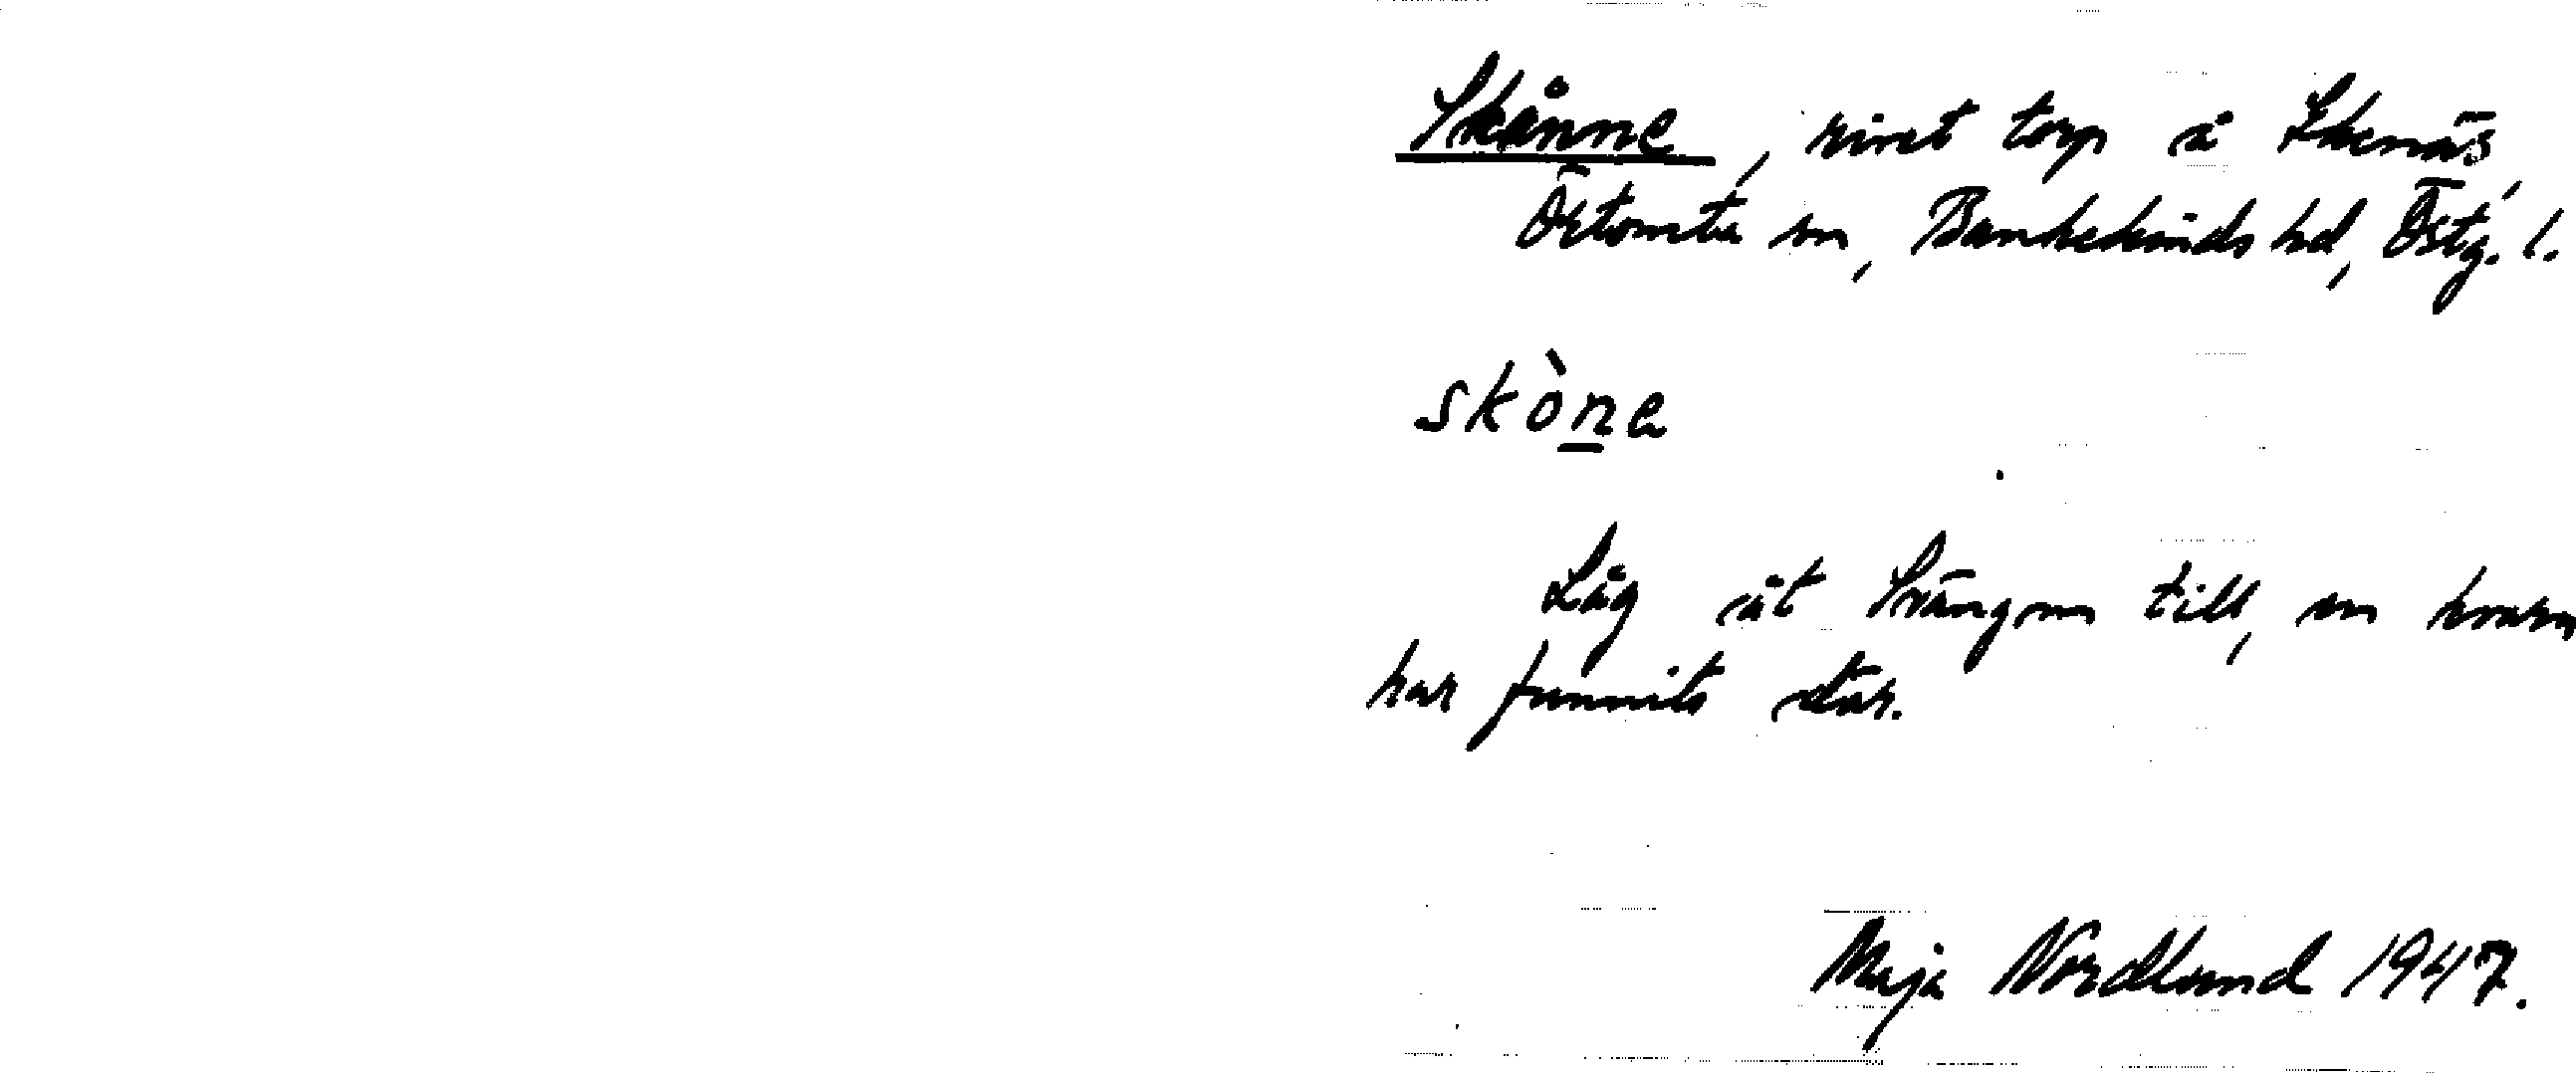 Skånne, rivet torp å Ekenäs,
Örtomta sn, Bankekinds hd, Östg. l.
skòna
Låg åt Svängen till, en kvarn
har funnits där.
Maja Nordlund 1947.